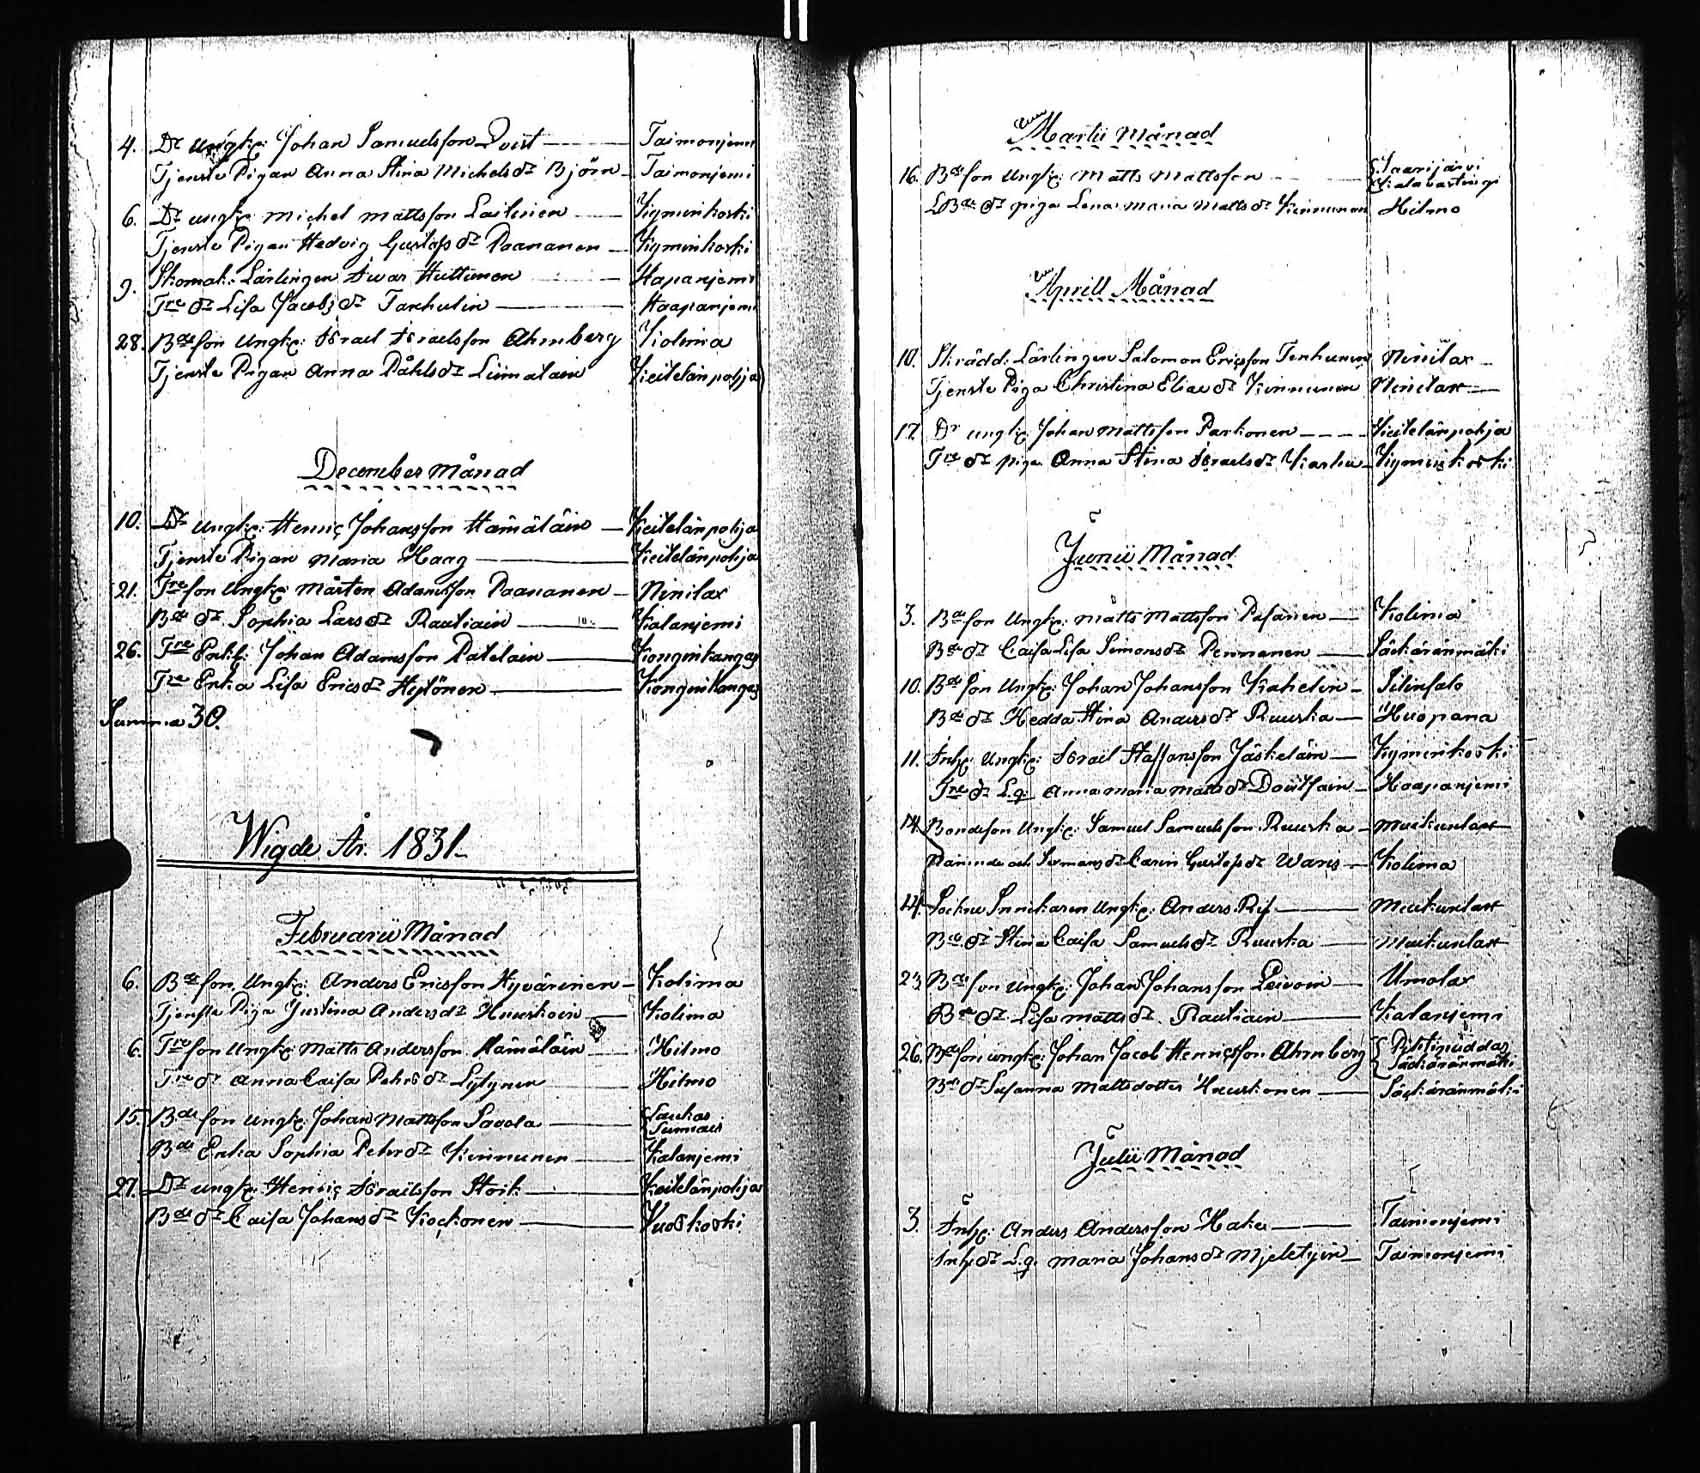 4. Dr Ungk: Johan Samuelsson Qvist Taimoniemi
Tjenste Pigan Anna Stina Michelsdr Björn Taimoniemi
6. Dr Ungk: Michel Mattsson Laitinen Kyminkoski
Tjenste Pigan Hedvig Gustafsdr Paananen Kyminkoski
9. Skomak: Lärlingen Ivar Huttunen Hapaniemi
Tre dr Lisa Jacobsdr Tarhulin Haapaniemi
28. Bde son Ungk: Israel Israelsson Ahrnberg Kolima
Tjenste Pigan Anna Påhlsdr Liimatain Keitelänpohja
December Månad
10. Dr Ungk: Henric Johansson Hämäläin Keitelänpohja
Tjenste Pigan Maria Haag Keitelänpohja
21. Tre son Ungk: Mårten Adamsson Paananen Ninilax
Bde dr Sophia Larsdr Rautiain Kalaniemi
26. Tre Enkl: Johan Adamsson Patelain Konginkangas
Tre Enka Lisa Ericsdr Hytönen Konginkangas
Summa 30.
Wigde År 1831
Februarii Månad
6. Bde son Ungk: Anders Ericsson Hyvärinen Kolima
Tjenste Piga Justina Andersdr Kuuskoin Kolima
6. Tre son Ungk: Matts Andersson Hämäläin Hilmo
Tre dr Anna Caisa Pehrsdr Lytynen Hilmo
15. Bde son Ungk: Johan Mattsson Savola Laukas Sumiais
Bde Enka Sophia Pehrsdr Kinnunen Kalaniemi
27. Dr Ungk: Henric Israelsson Stork Keitelänpohja
Bde dr Caisa Johansdr Kockonen Vuoskoski
Martii Månad
16. Bde son Ungk: Matts Mattsson Saarijärvi
LBde dr piga Lena Maria Mattsdr Kinnunen Hilmo
Aprill Månad
10. Skrädd: Lärlingen Salomon Ericsson Tenhunen Ninilax
Tjenste Piga Christina Eliaedr Kinnunen Ninilax
17. Dr Ungk: Johan Mattsson Parkonen Keitelänpohja
Tre dr piga Anna Stina Israelsdr Karhu Kyminkoski
Junii Månad
3. Bde son Ungk: Matts Mattsson Pasanen Kolima
Bde dr Caisa Lisa Simonsdr Pennanen Säckäränmäki
10. Bde son Ungk: Johan Johansson Kahelin Silinsalo
Bde dr Hedda Stina Andersdr Ruuska Huopana
11. Inh: Ungk: Israel Staffansson Jäskeläin Kyminkoski
Tre dr L.q. Anna Maria Mattsdr Douitsain Haapaniemi
14. Bondeson Ungk: Samuel Samuelsson Ruuska Muikunlax
Carin Gustafsdr Waris Kolima
14. Sockne Snickaren Ungk: Anders Rif Muikunlax
Bde dr Stina Caisa Samuelsdr Ruuska Muikunlax
23. Bde son Ungk: Johan Johansson Leivoin Umolax
Bde dr Lisa Mattsdr Rautiain Kalaniemi
26. Bde son Ungk: Johan Jacob Henricsson Ahrnberg Säckäränmäki
Bde dr Susanna Mattsdotter Kuuskonen Säckäränmäki
Julii Månad
3. Inh: Anders Andersson Hake Taimoniemi
Inh: dr L.q. Maria Johansdr Mieletyin Taimoniemi